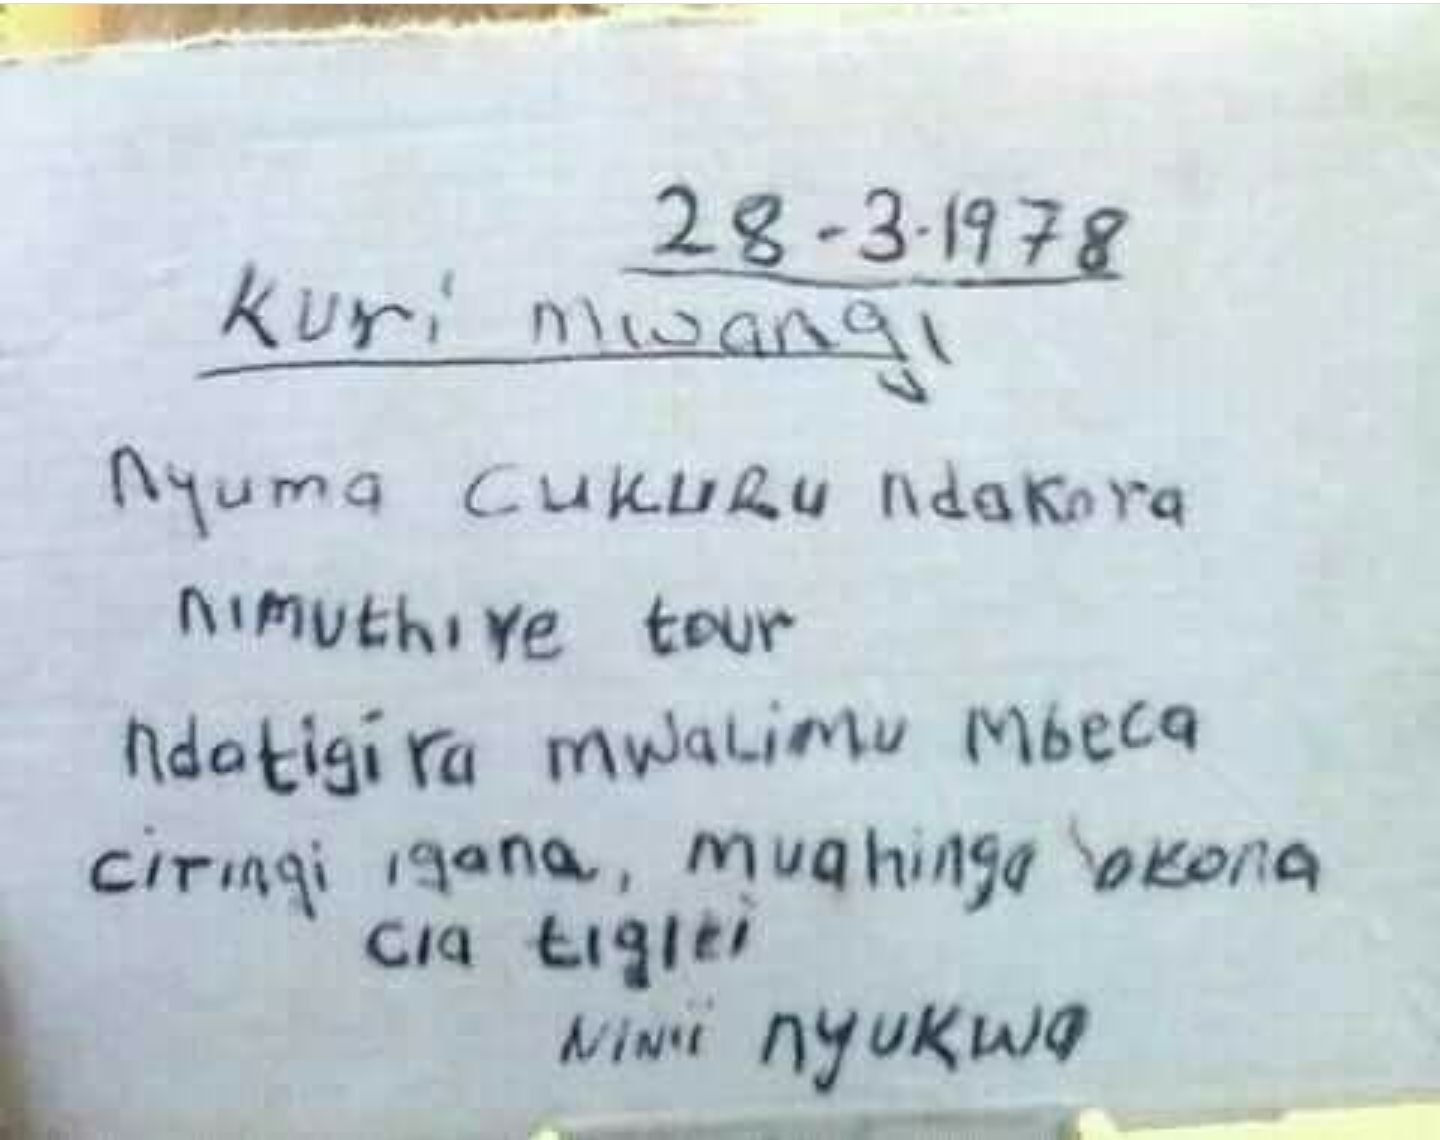 28-3-1978
Kuri mwangi
Nyuma cukuru ndakora
nimuthiye tour
ndatigira mwalimu Mbeca
ciringi igana, muahinga okona
cia tigiti
Ninii nyukwa